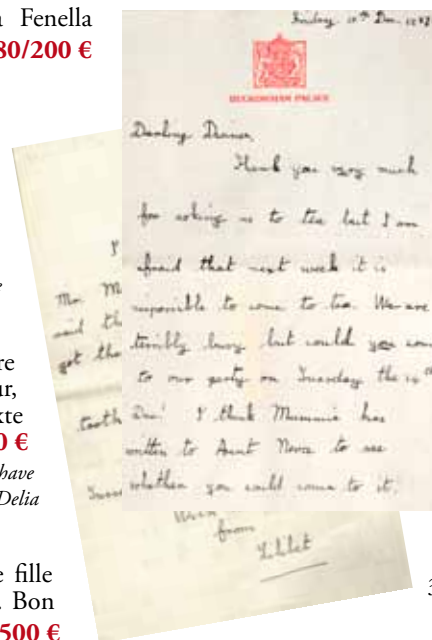 Fenella
80/200 €
re
ur,
xte
0 €
have
Delia
fille
. Bon
500 €
Dec.
BUCKINGHAM PALACE
Darling
Thank you very much
for asking us to tea but I am
afraid that next week it is
impossible to come to tea. We are
terribly busy but could you come
to our party on Tuesday the
Dec? I think Mummie has
written to Aunt to see
whether you could come to it.
Mr. M
said th
got tha
tooth
from
Lilibet
3